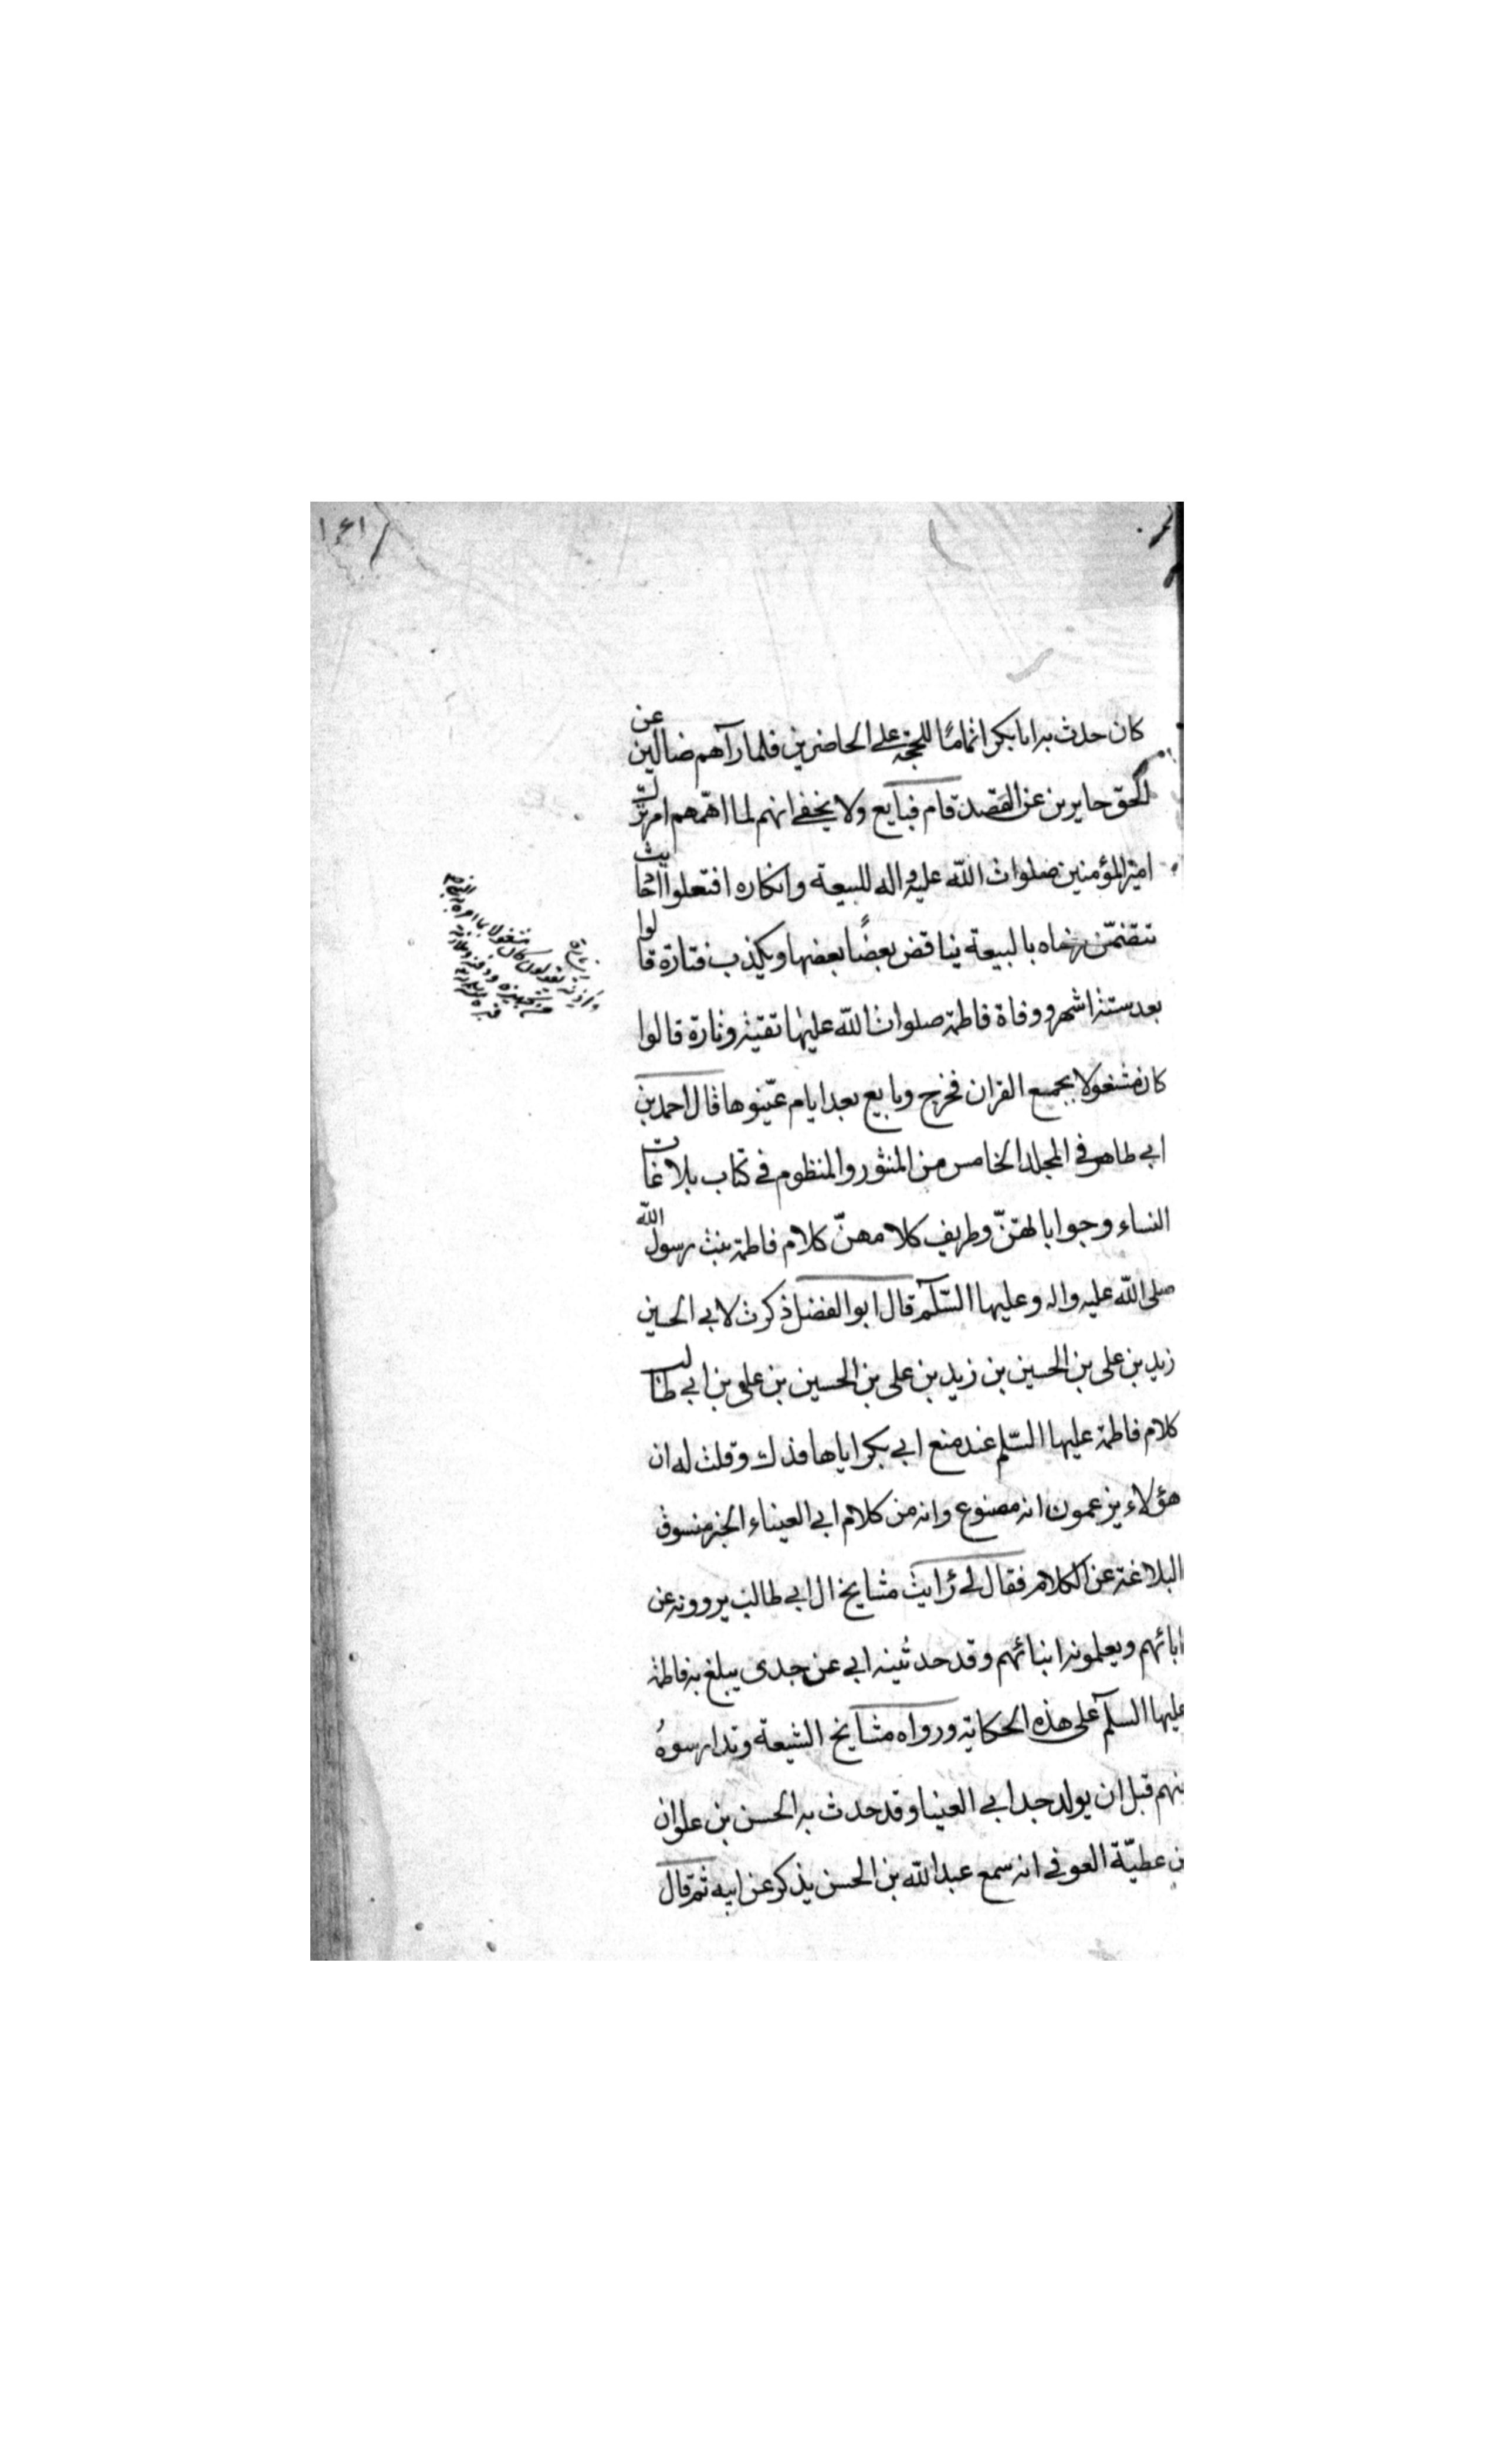 كان حدث به ابا بكر اتماما للحجة على الحاضرين فلما رآهم ضالين عن
الحق حايرين عن القصد قام فبايع ولا يخفى انهم لما اهمهم امر ترك
امير المؤمنين صلوات الله عليه واله للبيعة وانكاره افتعلوا احاديث
تتضمن رضاه بالبيعة يناقض بعضًا بعضها ويكذب فتارة قالوا
بعد ستة اشهر ووفاة فاطمة صلوات الله عليها تقية وتارة قالوا
كان مشغولا بجمع القران فخرج وبايع بعد ايام عيّنوها قال احمد بن
ابي طاهر في المجلد الخامس من المنثور والمنظوم في كتاب بلاغات
النساء وجواباتهنّ وطريف كلامهنّ كلام فاطمة بنت رسول الله
صلى الله عليه واله وعليها السّلم قال ابو الفضل ذكرت لابي الحسين
زيد بن على بن الحسين بن زيد بن على بن الحسين بن على بن ابي طالب
كلام فاطمة عليها السّلم عند منع ابي بكر اياها فدك وقلت له ان
هؤلاء يزعمون انه مصنوع وانه من كلام ابي العيناء الخبر منسوق
البلاغة عن الكلام فقال لى رايت مشايخ ال ابي طالب يروونه عن
ابائهم ويعلمونه ابنائهم وقد حدثنيه ابي عن جدى يبلغ به فاطمة
عليها السلم على هذه الحكاية ورواه مشايخ الشيعة وتدارسوهُ
بينهم قبل ان يولد جد ابي العينا وقد حدث به الحسن بن علوان
عن عطيّة العوفي انه سمع عبد الله بن الحسن يذكر عن ابيه ثم قال
وتارة يقولون كان مشغولا بامر
من تجهيزه ودفنه وملازمة
قبره
١٤١